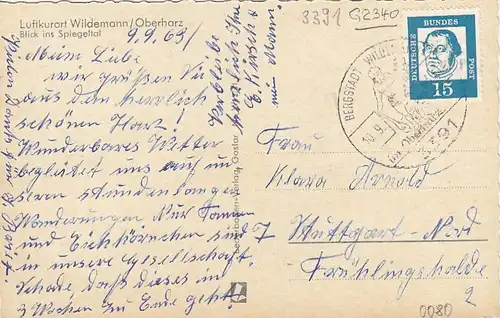 Luftkurort Wildemann/Oberharz
Blick ins Spiegeltal
9.9.63
Meine Liebe
wir grüßen Sie
aus dem herrlich
schönen Harz!
Wunderbares Wetter
begleitet uns auf un
seren stundenlangen
Wanderungen. Nur Tannen
und Eichhörnchen sind
in unsere Gesellschaft.
Schade, daß dieses in
3 Wochen zu Ende geht!
Verbleibe
herzlich Ihre
E. Kirsch &
mein Mann
Vielen Dank für
3391 G2340
BERGSTADT WILDE
10.9.
DEUTSCHE BUNDES POST
15
Frau
Klara Arnold
7 Stuttgart-Nord
Frühlingshalde
2
0080